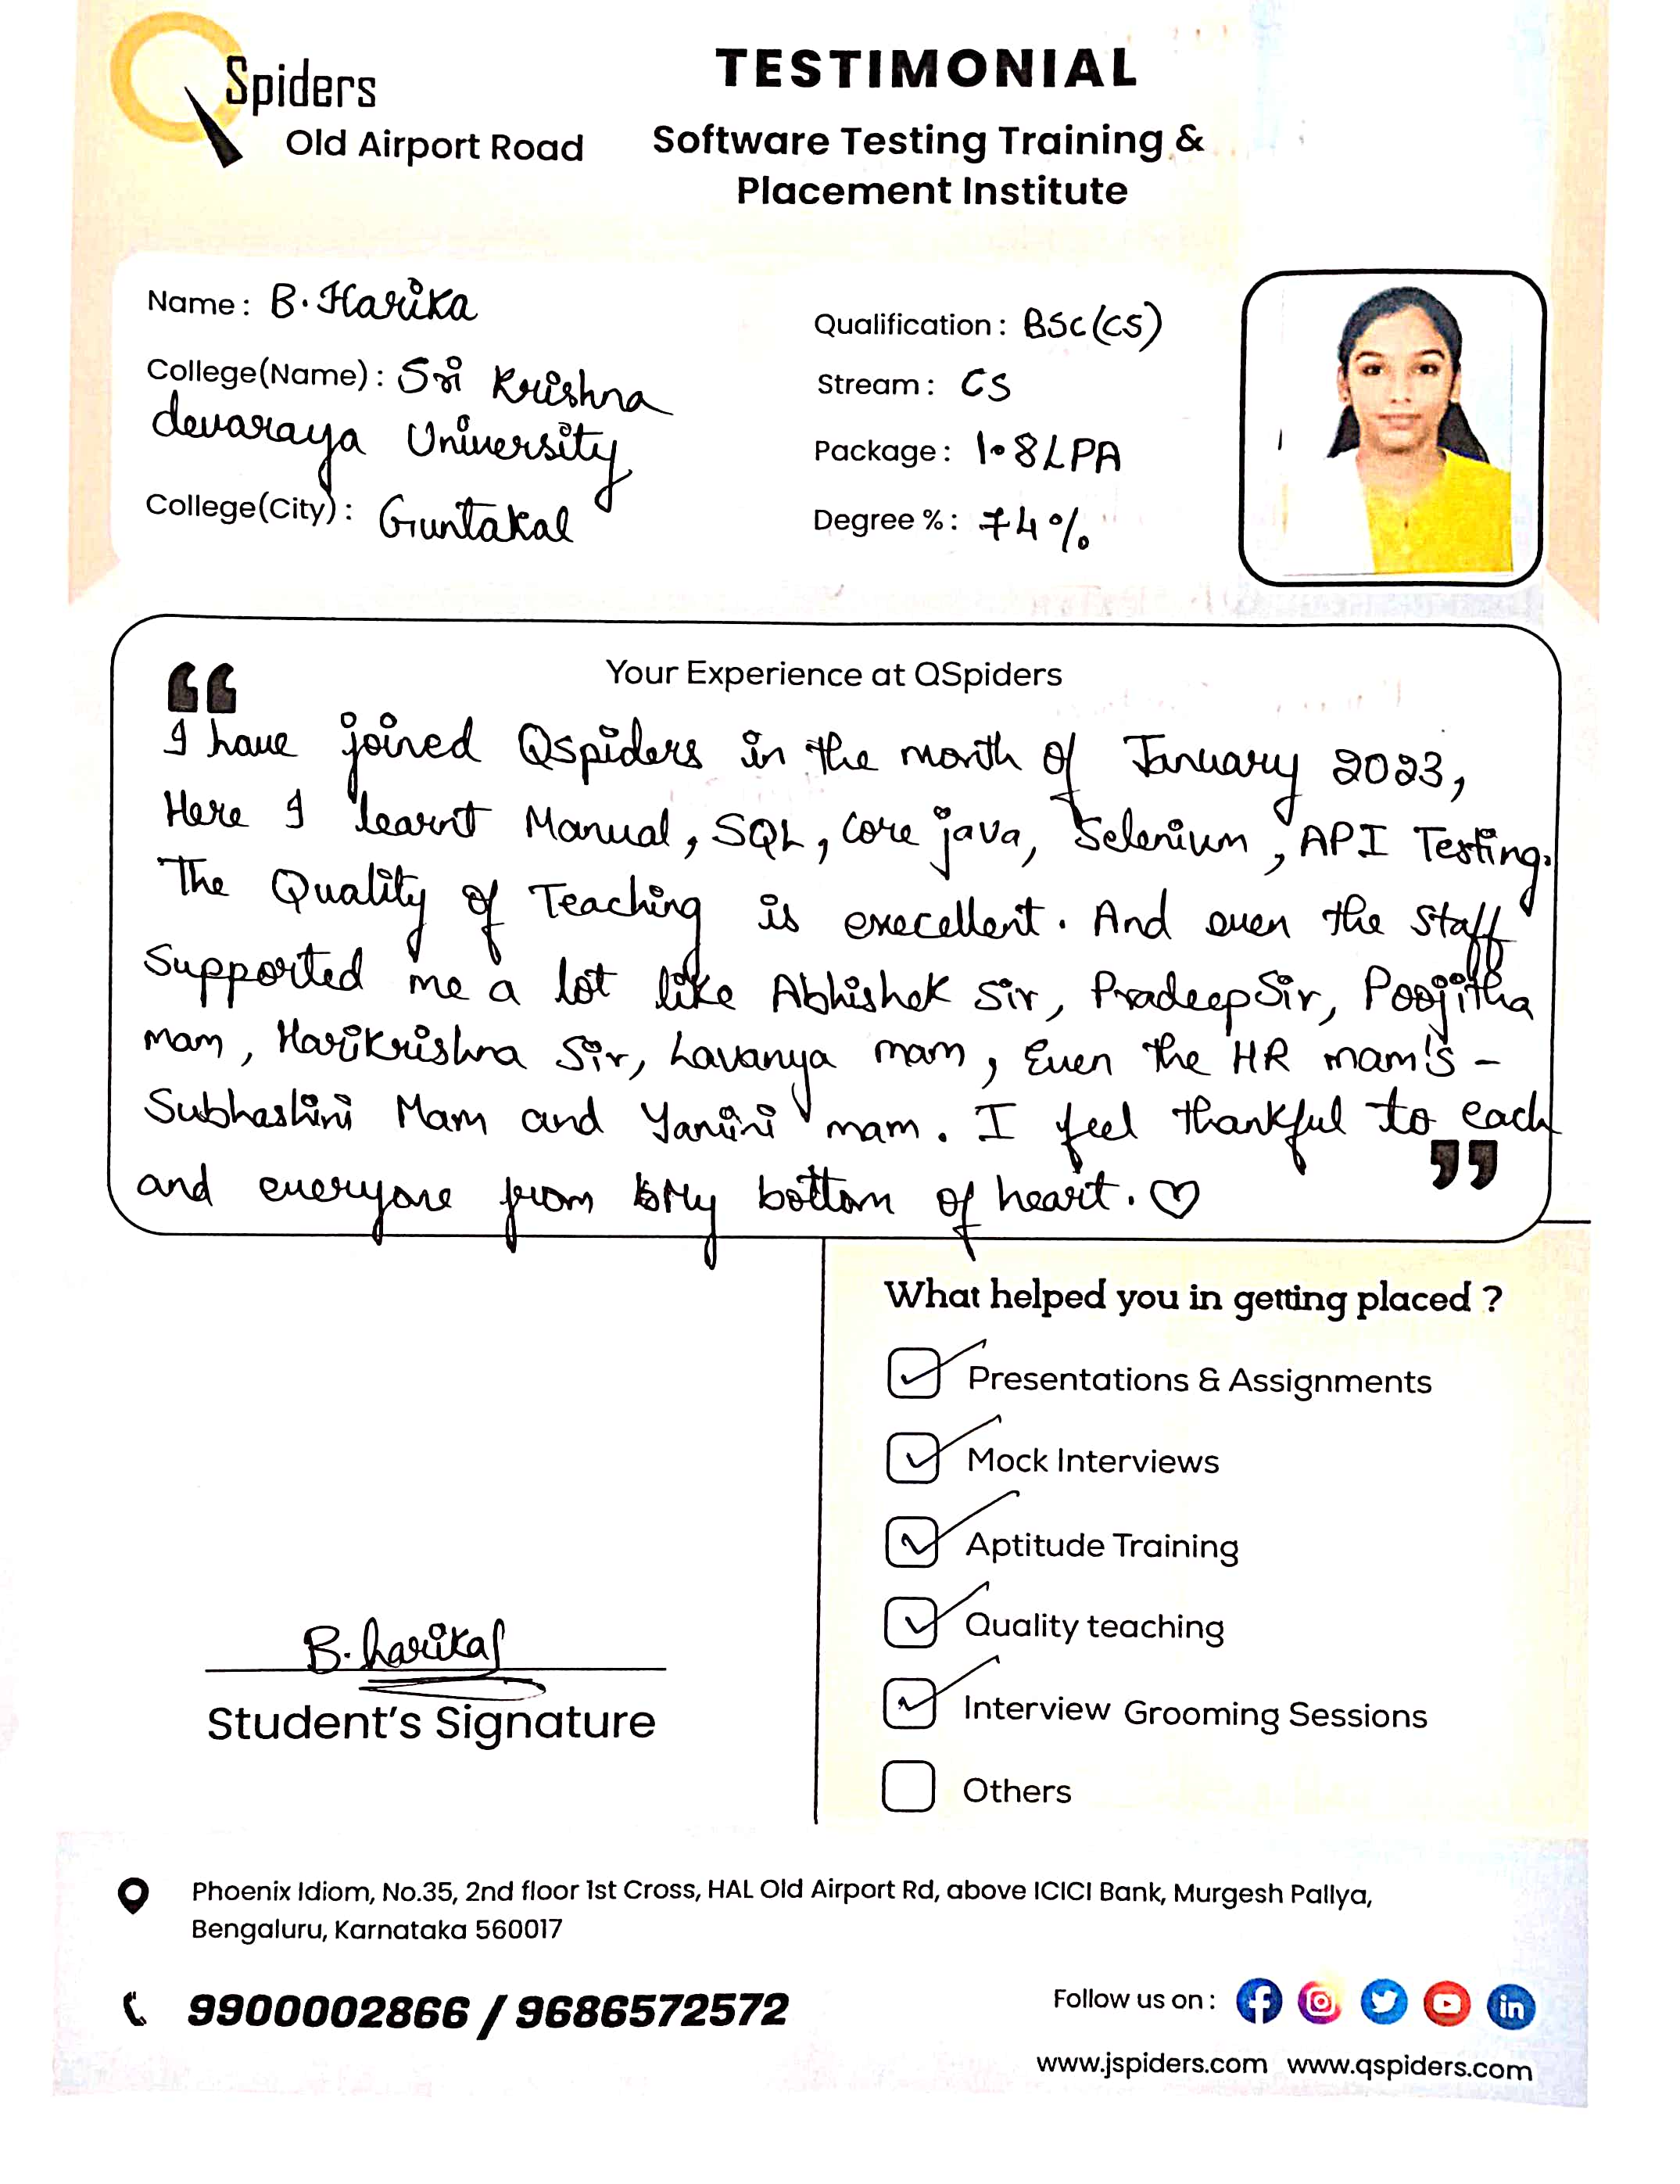 Spiders
Old Airport Road
TESTIMONIAL
Software Testing Training &
Placement Institute
Name : B. Harika
College(Name) : Sri Krishna
devaraya University
College(City) : Guntakal
Qualification : BSc(CS)
Stream : CS
Package : 1.8LPA
Degree % : 74%
Your Experience at QSpiders
I have joined Qspiders in the month of January 2023,
Here I learnt Manual, SQL, Core java, Selenium, API Testing.
The Quality of Teaching is execellent. And even the staff
Supported me a lot like Abhishek Sir, Pradeep Sir, Poojitha
mam, Harikrishna Sir, Lavanya mam, Even the HR mam's -
Subhashini Mam and Yamini mam. I feel thankful to each
and everyone from My bottom of heart. ♡
What helped you in getting placed ?
Presentations & Assignments
Mock Interviews
Aptitude Training
Quality teaching
Interview Grooming Sessions
Others
B. harika
Student's Signature
Phoenix Idiom, No.35, 2nd floor 1st Cross, HAL Old Airport Rd, above ICICI Bank, Murgesh Pallya,
Bengaluru, Karnataka 560017
9900002866 / 9686572572
Follow us on :
www.jspiders.com www.qspiders.com